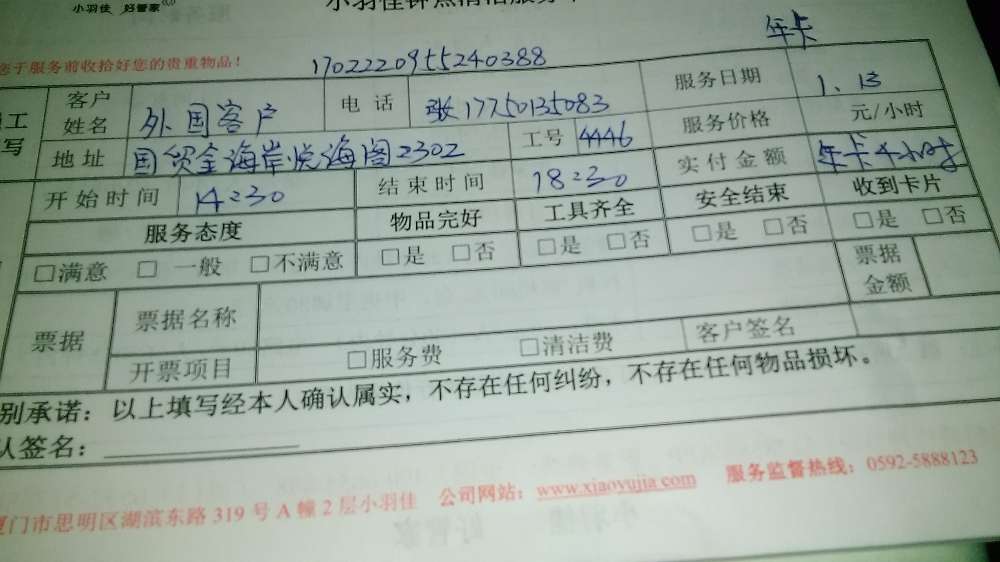 小羽佳 好管家
小羽佳钟点清洁服务
年卡
您于服务前收拾好您的贵重物品!
1702220955240388
工写
客户姓名 外国客户 电话 张17750135083 服务日期 1.13
地址 国贸金海岸悦海阁2302 工号 4446 服务价格 元/小时
开始时间 14:30 结束时间 18:30 实付金额 年卡4小时
服务态度 物品完好 工具齐全 安全结束 收到卡片
□满意 □一般 □不满意 □是 □否 □是 □否 □是 □否 □是 □否
票据 票据名称 票据金额
开票项目 □服务费 □清洁费 客户签名
别承诺：以上填写经本人确认属实，不存在任何纠纷，不存在任何物品损坏。
认签名：
厦门市思明区湖滨东路319号A幢2层小羽佳 公司网站：www.xiaoyujia.com 服务监督热线：0592-5888123